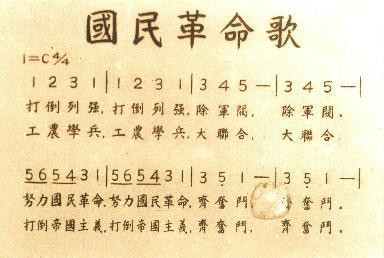 國民革命歌
1=C 4/4
1 2 3 1 | 1 2 3 1 | 3 4 5 — | 3 4 5 — |
打倒列强, 打倒列强, 除軍閥, 除軍閥.
工農學兵, 工農學兵, 大聯合, 大聯合.
565431 | 565431 | 3 5 1 — | 3 5 1 — |
努力國民革命, 努力國民革命, 齊奮鬥, 齊奮鬥。
打倒帝國主義, 打倒帝國主義, 齊奮鬥, 齊奮鬥。